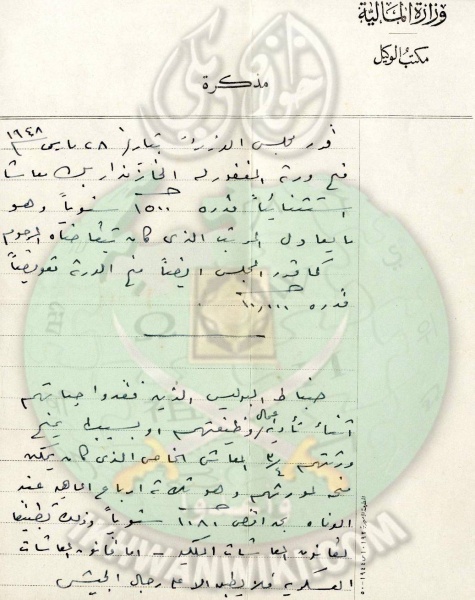 وزارة المالية
مكتب الوكيل
مذكرة
قرر مجلس الوزراء بتاريخ ٢٨ مارس ١٩٤٨
منح ورثة المغفور له الخازندار بك معاشا
استثنائياً قدره ١٥٠٠ سنوياً وهو
ما يعادل المرتب الذى كان يتقاضاه المرحوم
كما قرر المجلس ايضاً منح الورثة تعويضاً
قدره ١٠,٠٠٠
ضباط البوليس الذين فقدوا حياتهم
أثناء تأدية أعمال وظيفتهم او بسببها يمنح
ورثتهم ٣/٤ المعاش الخاص الذى كان يمكن
منحه لمورثهم وهو ثلاثة ارباع الماهية عند
الوفاه بحد اقصى سنوياً وذلك تطبيقا
لقانون المعاشات الملكيه - اما قانون المعاشات
العسكريه فلا يطبق الا على رجال الجيش
IKHWANWIKI.COM